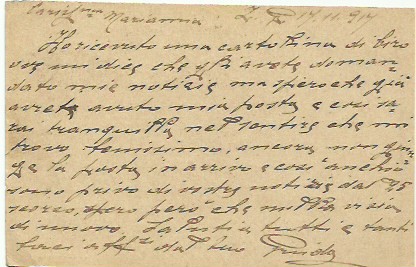 Cariss.ma Marianna, Z. P. 17.11.917
Ho ricevuto una cartolina di
ove mi dice che gli avete doman
dato mie notizie ma spero che già
avrete avuto mia posta e così sa
rai tranquilla nel sentire che mi
trovo benissimo, ancora non giun
ge la posta in arrivo e così anch'io
sono privo di vostre notizie dal 25
scorso, spero però che nulla vi sia
di nuovo. Saluti a tutti e tanti
baci aff.mi dal tuo Guido